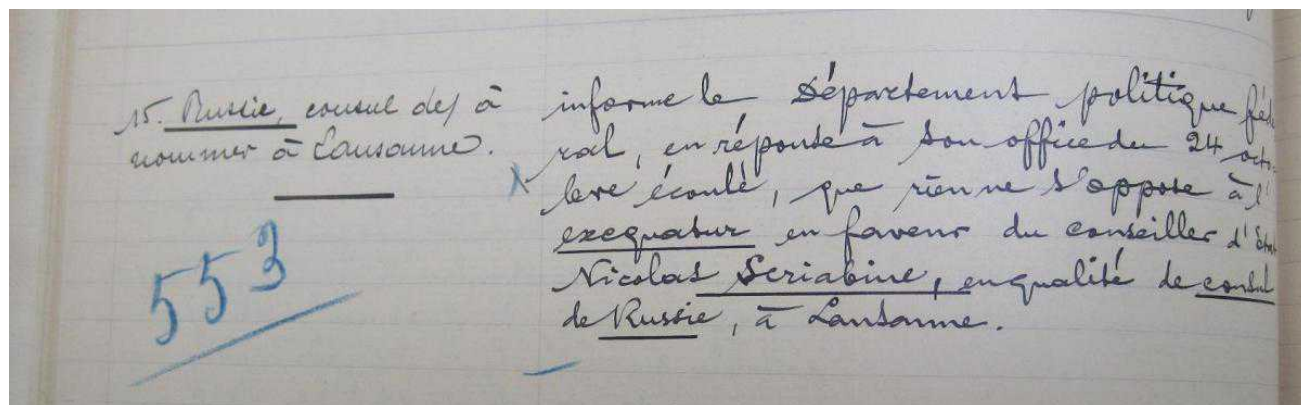 15. Russie, consul de, à
nommer à Lausanne.
553
informe le Département politique fédé
ral, en réponse à son office du 24 octo-
bre écoulé, que rien ne s'oppose à l'
exequatur en faveur du conseiller d'Etat
Nicolas Scriabine, en qualité de consul
de Russie, à Lausanne.